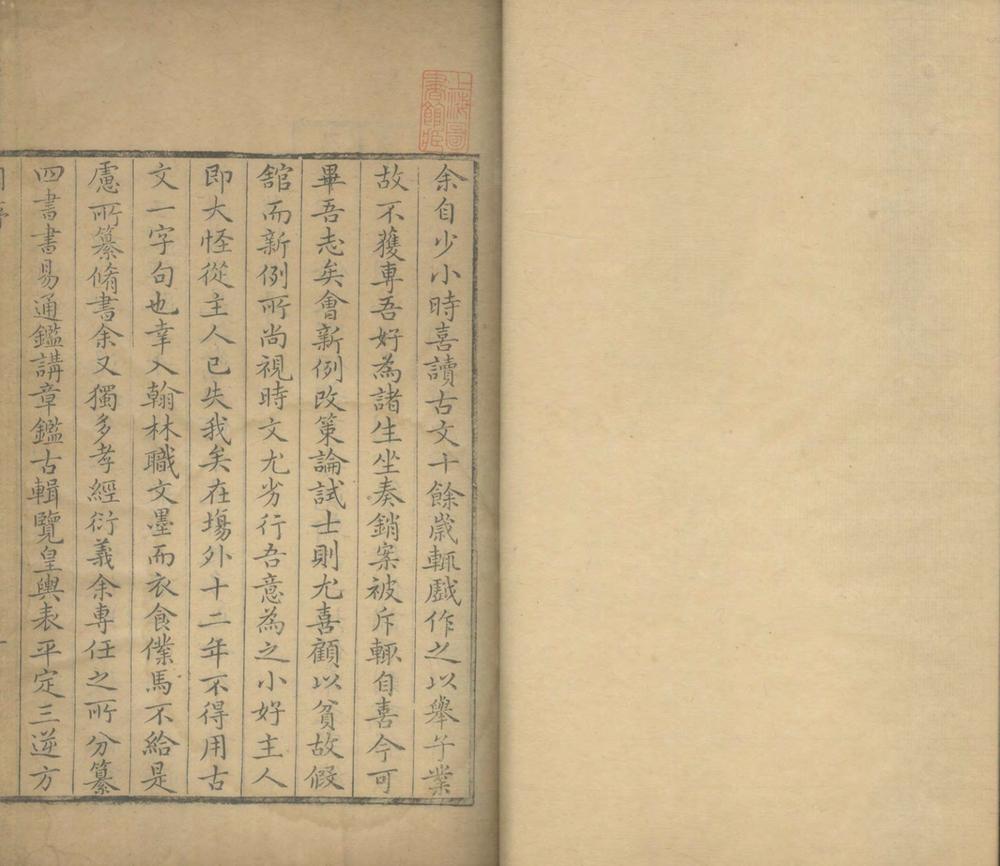 上海圖
書館藏
余自少小時喜讀古文十餘歲輒戲作之以舉子業
故不獲專吾好為諸生坐奏銷案被斥輒自喜今可
畢吾志矣會新例改策論試士則尤喜顧以貧故假
舘而新例所尚視時文尤劣行吾意為之小好主人
即大怪從主人已失我矣在塲外十二年不得用古
文一字句也幸入翰林職文墨而衣食僕馬不給是
慮所纂脩書余又獨多孝經衍義余專任之所分纂
四書書易通鑑講章鑑古輯覽皇輿表平定三逆方